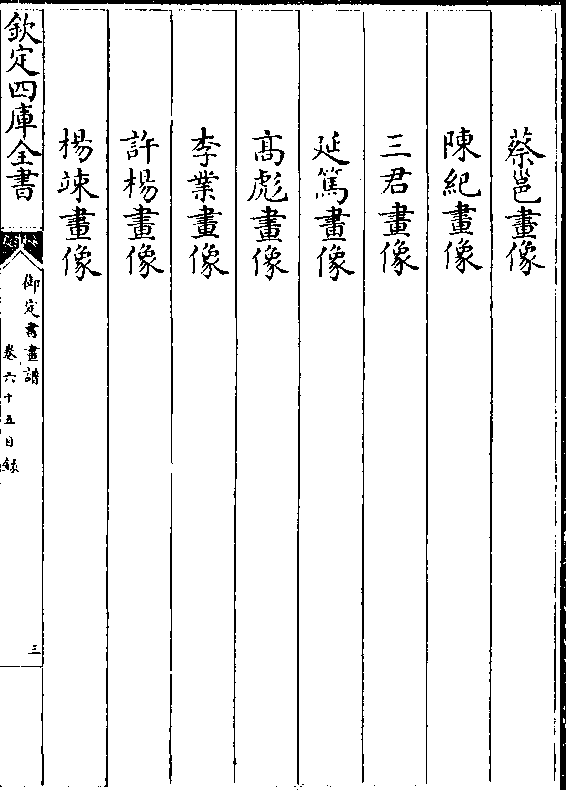 蔡邕畫像
陳紀畫像
三君畫像
延篤畫像
高彪畫像
李業畫像
許楊畫像
楊竦畫像
欽定四庫全書
御定書畫譜
卷六十五目錄
三